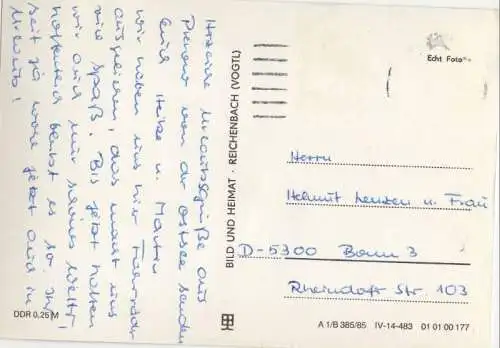 Herzliche Urlaubsgrüße aus
Prerow von der Ostsee senden
Euch Heike u. Martin
wir haben uns hier Fahrräder
ausgeliehen, das macht uns
viel Spaß. Bis jetzt hatten
wir auch nur schönes Wetter.
hoffentlich bleibt es so. Ihr
seit ja wohl jetzt auch in
Urlaub!
DDR 0,25 M
BILD UND HEIMAT · REICHENBACH (VOGTL)
Echt Foto
Herrn
Helmut u. Frau
D-5300 Bonn 3
Rheindorfer Str. 103
A 1/B 385/85 IV-14-483 01 01 00 177